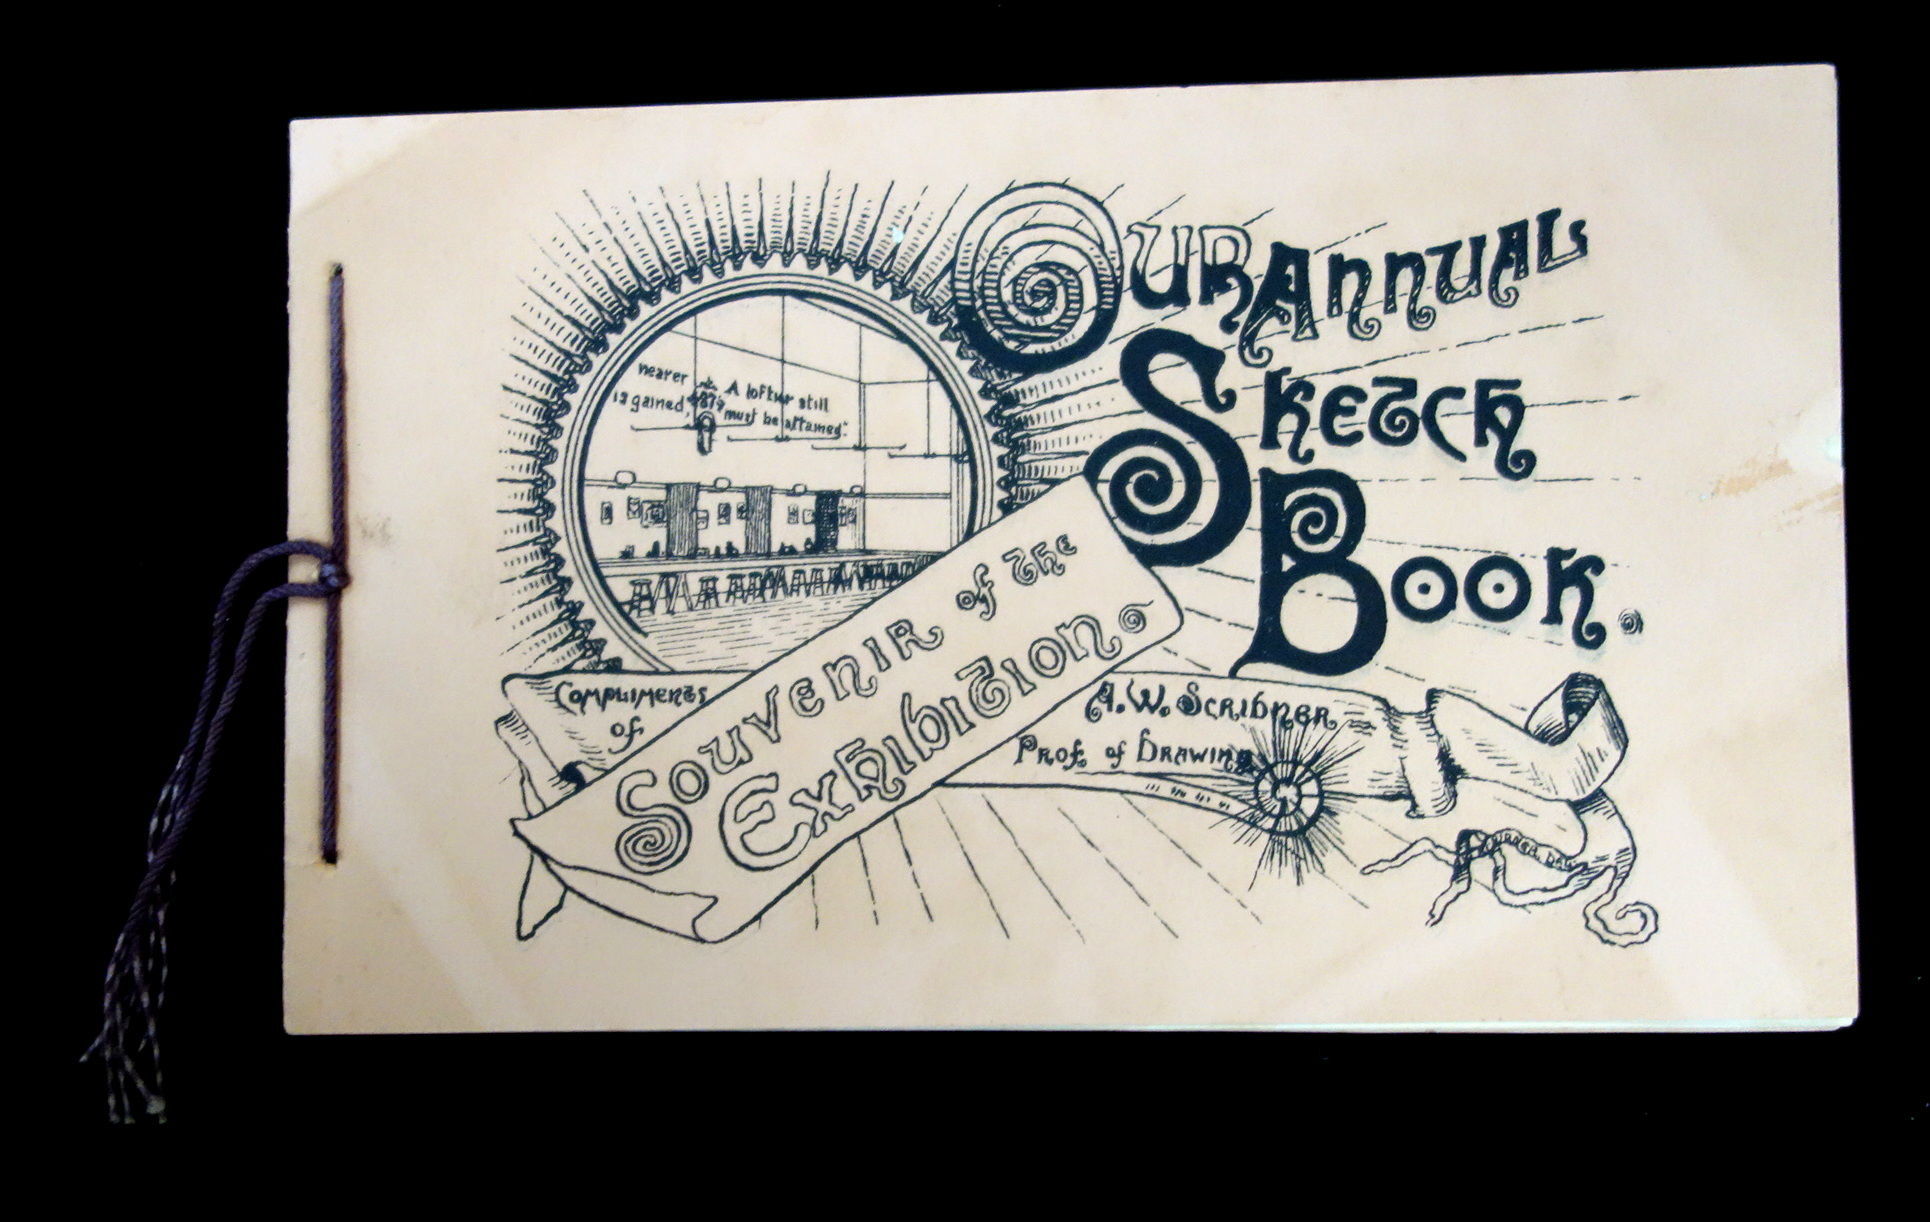 Our Annual
Sketch
Book.
nearer
is gained,
A loftier still
must be attained."
Souvenir of the
Exhibition.
Compliments
of
A. W. Scribner
Prof. of Drawing